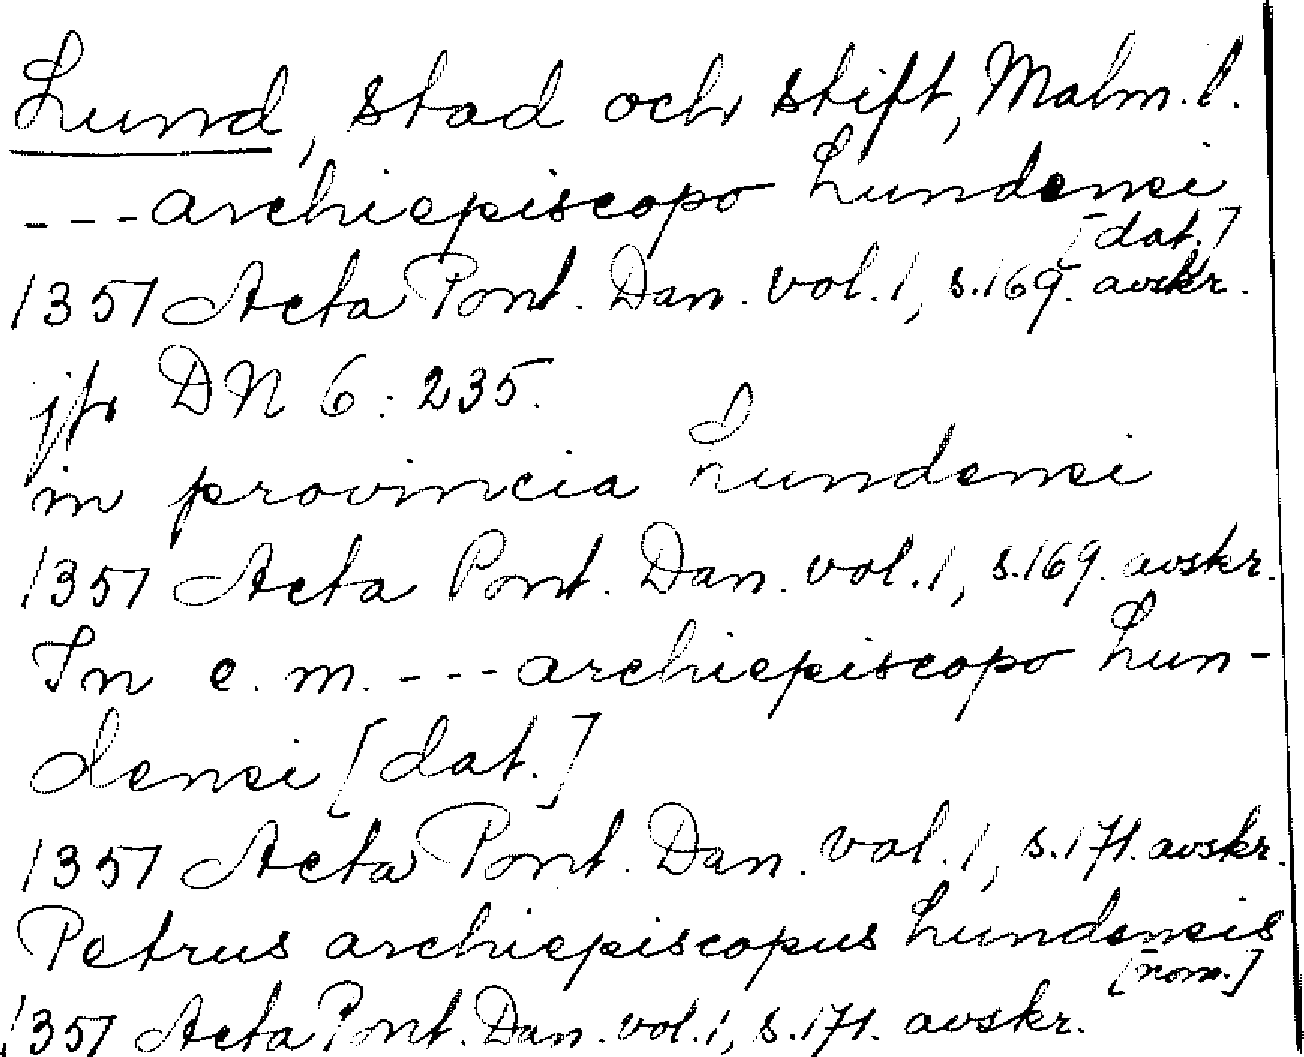 Lund, stad och stift, Malm. l.
---archiepiscopo Lundensi
[dat.]
1351 Acta Pont. Dan. vol. 1, s. 169. avskr.
jfr DN 6: 235.
in provincia Lundensi
1351 Acta Pont. Dan. vol. 1, s. 169. avskr.
In e. m. ---archiepiscopo Lun-
densi [dat.]
1351 Acta Pont. Dan. vol. 1, s. 171. avskr.
Petrus archiepiscopus Lundensis
[nom.]
1351 Acta Pont. Dan. vol. 1, s. 171. avskr.